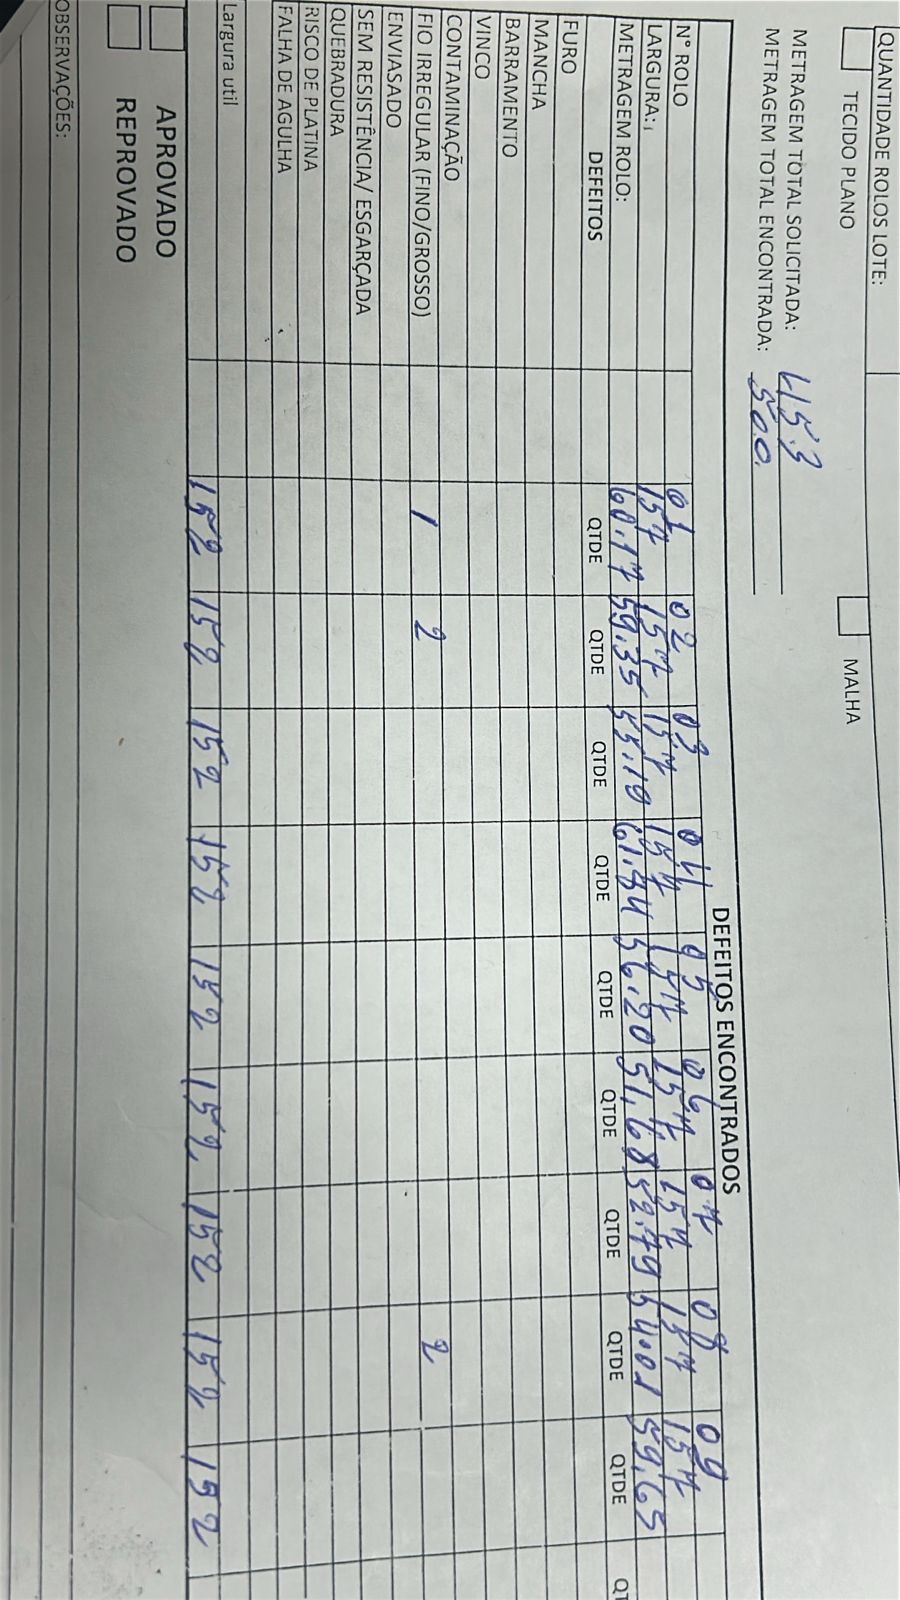 QUANTIDADE ROLOS LOTE:
TECIDO PLANO MALHA
METRAGEM TOTAL SOLICITADA: 453
METRAGEM TOTAL ENCONTRADA: 500
DEFEITOS ENCONTRADOS
N° ROLO 01 02 03 04 05 06 07 08 09
LARGURA: 157 157 157 157 157 157 157 157 157
METRAGEM ROLO: 60.17 59.35 55.19 61.84 56.20 51,68 52.79 54.01 59,65
DEFEITOS QTDE QTDE QTDE QTDE QTDE QTDE QTDE QTDE QTDE QT
FURO
MANCHA
BARRAMENTO
VINCO
CONTAMINAÇÃO
FIO IRREGULAR (FINO/GROSSO) 1 2 2
ENVIASADO
SEM RESISTÊNCIA/ ESGARÇADA
QUEBRADURA
RISCO DE PLATINA
FALHA DE AGULHA
Largura util 152 152 152 152 152 152 152 152 152
APROVADO
REPROVADO
OBSERVAÇÕES: